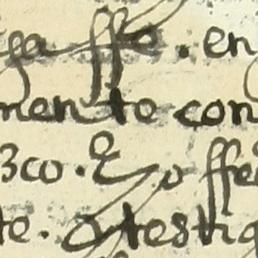 ga ffe. en
mente con
zco. E yo ffe
te. Otestig